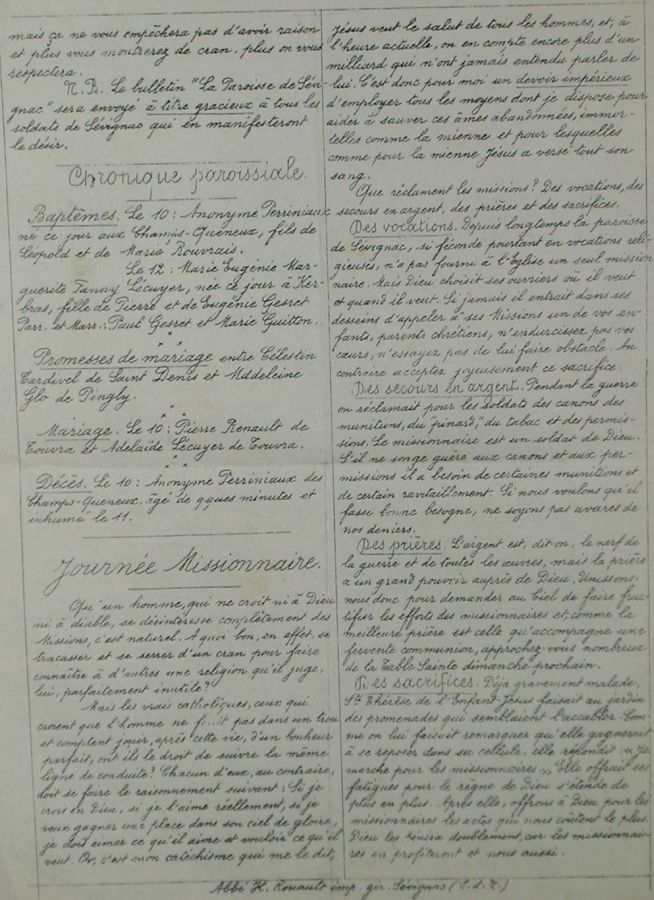 mais ça ne vous empêchera pas d'avoir raison
et plus vous montrerez de cran, plus on vous
respectera.
N.B. Le bulletin "La Paroisse de Sévi-
gnac" sera envoyé à titre gracieux à tous les
soldats de Sévignac qui en manifesteront
le désir.
Chronique paroissiale.
Baptêmes. Le 10 : Anonyme Perriniaux
né ce jour aux Champs-Quéneux, fils de
Léopold et de Marie Rouvrais.
Le 12 : Marie Eugénie Mar-
guerite Fanny Lécuyer, née ce jour à Ker-
bras, fille de Pierre et de Eugénie Gesret
Parr. et Marr. : Paul Gesret et Marie Guitton.
Promesses de mariage entre Célestin
Tardivel de Saint Denis et Madeleine
Glo de Pingly.
Mariage. Le 10 : Pierre Renault de
Touvra et Adelaïde Lécuyer de Touvra.
Décès. Le 10 : Anonyme Perriniaux des
Champs-Queneux, âgé de qques minutes et
inhumé le 11.
Journée Missionnaire.
Qu'un homme, qui ne croit ni à Dieu
ni à diable, se désintéresse complètement des
Missions, c'est naturel. A quoi bon, en effet, se
tracasser et se serrer d'un cran pour faire
connaître à d'autres une religion qu'il juge,
lui, parfaitement inutile?
Mais les vrais catholiques, ceux qui
croient que l'homme ne finit pas dans un trou
et comptent jouir, après cette vie, d'un bonheur
parfait, ont ils le droit de suivre la même
ligne de conduite? Chacun d'eux, au contraire,
doit se faire le raisonnement suivant : Si je
crois en Dieu, si je l'aime réellement, si je
veux gagner une place dans son ciel de gloire,
je dois aimer ce qu'il aime et vouloir ce qu'il
veut. Or, c'est mon catéchisme qui me le dit,
Jésus veut le salut de tous les hommes, et, à
l'heure actuelle, on en compte encore plus d'un
milliard qui n'ont jamais entendu parler de
lui. C'est donc pour moi un devoir impérieux
d'employer tous les moyens dont je dispose pour
aider à sauver ces âmes abandonnées, immor-
telles comme la mienne et pour lesquelles
comme pour la mienne Jésus a versé tout son
sang.
Que réclament les missions? Des vocations, des
secours en argent, des prières et des sacrifices.
Des vocations. Depuis longtemps la paroisse
de Sévignac, si féconde pourtant en vocations reli-
gieuses, n'a pas fourni à l'Eglise un seul mission
naire. Mais Dieu choisit ses ouvriers où il veut
et quand il veut. Si jamais il entrait dans ses
desseins d'appeler à ses Missions un de vos en-
fants, parents chrétiens, n'endurcissez pas vos
cœurs, n'essayez pas de lui faire obstacle. Au
contraire acceptez joyeusement ce sacrifice.
Des secours en argent. Pendant la guerre
on réclamait pour les soldats des canons des
munitions, du "pinard," du tabac et des permis-
sions. Le missionnaire est un soldat de Dieu.
S'il ne songe guère aux canons et aux per-
missions il a besoin de certaines munitions et
de certain ravitaillement. Si nous voulons qu'il
fasse bonne besogne, ne soyons pas avares de
nos deniers.
Des prières. L'argent est, dit-on, le nerf de
la guerre et de toutes les œuvres, mais la prière
a un grand pouvoir auprès de Dieu. Unissons-
nous donc pour demander au Ciel de faire fruc-
tifier les efforts des missionnaires et, comme la
meilleure prière est celle qu'accompagne une
fervente communion, approchez-vous nombreux
de la Table Sainte dimanche prochain.
Des sacrifices. Déjà gravement malade,
Ste Thérèse de l'Enfant-Jésus faisait au jardin
des promenades qui semblaient l'accabler. Com-
me on lui faisait remarquer qu'elle gagnerait
à se reposer dans sa cellule, elle répondit : « Je
marche pour les missionnaires ». Elle offrait ses
fatigues pour le règne de Dieu s'étende de
plus en plus. Après elle, offrons à Dieu pour les
missionnaires les actes qui nous coûtent le plus.
Dieu les bénira doublement, car les missionnai-
res en profiteront et nous aussi.
Abbé H. Rouault imp. gér. Sévignac (C.d.N.)